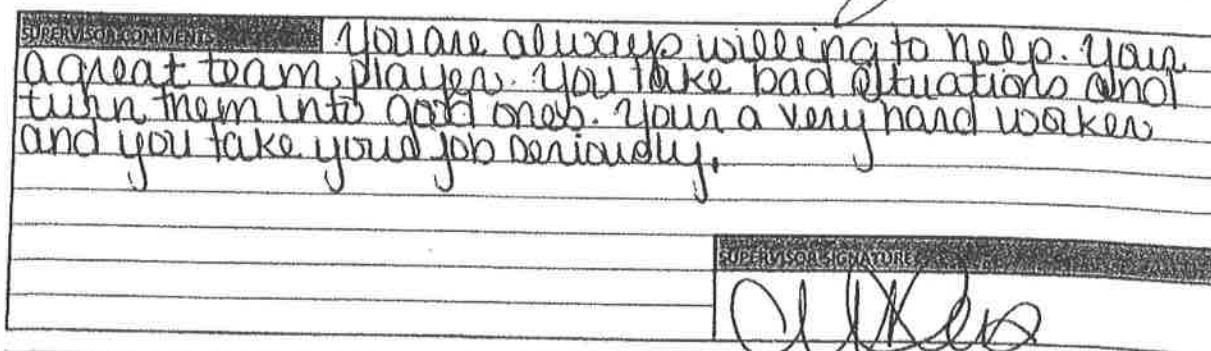 SUPERVISOR COMMENTS You are always willing to help. Your
a great team player. You take bad situations and
turn them into good ones. Your a very hard worker
and you take your job seriously.
SUPERVISOR SIGNATURE